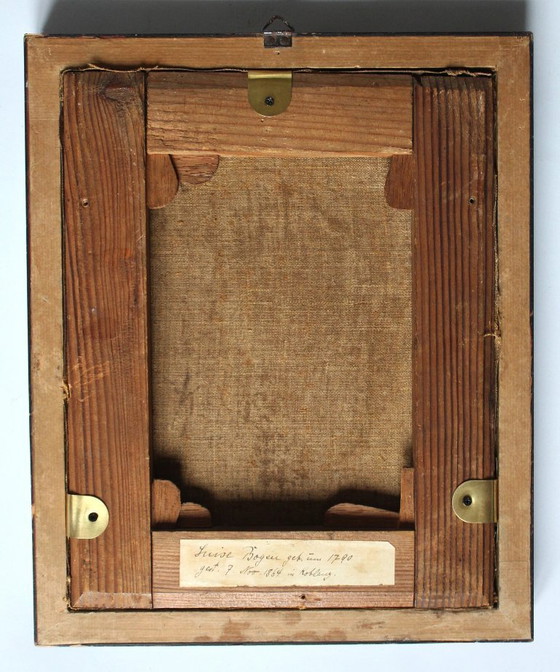 Luise Bogen geb. um 1790
gest. 7 Nov. 1864 in Koblenz.